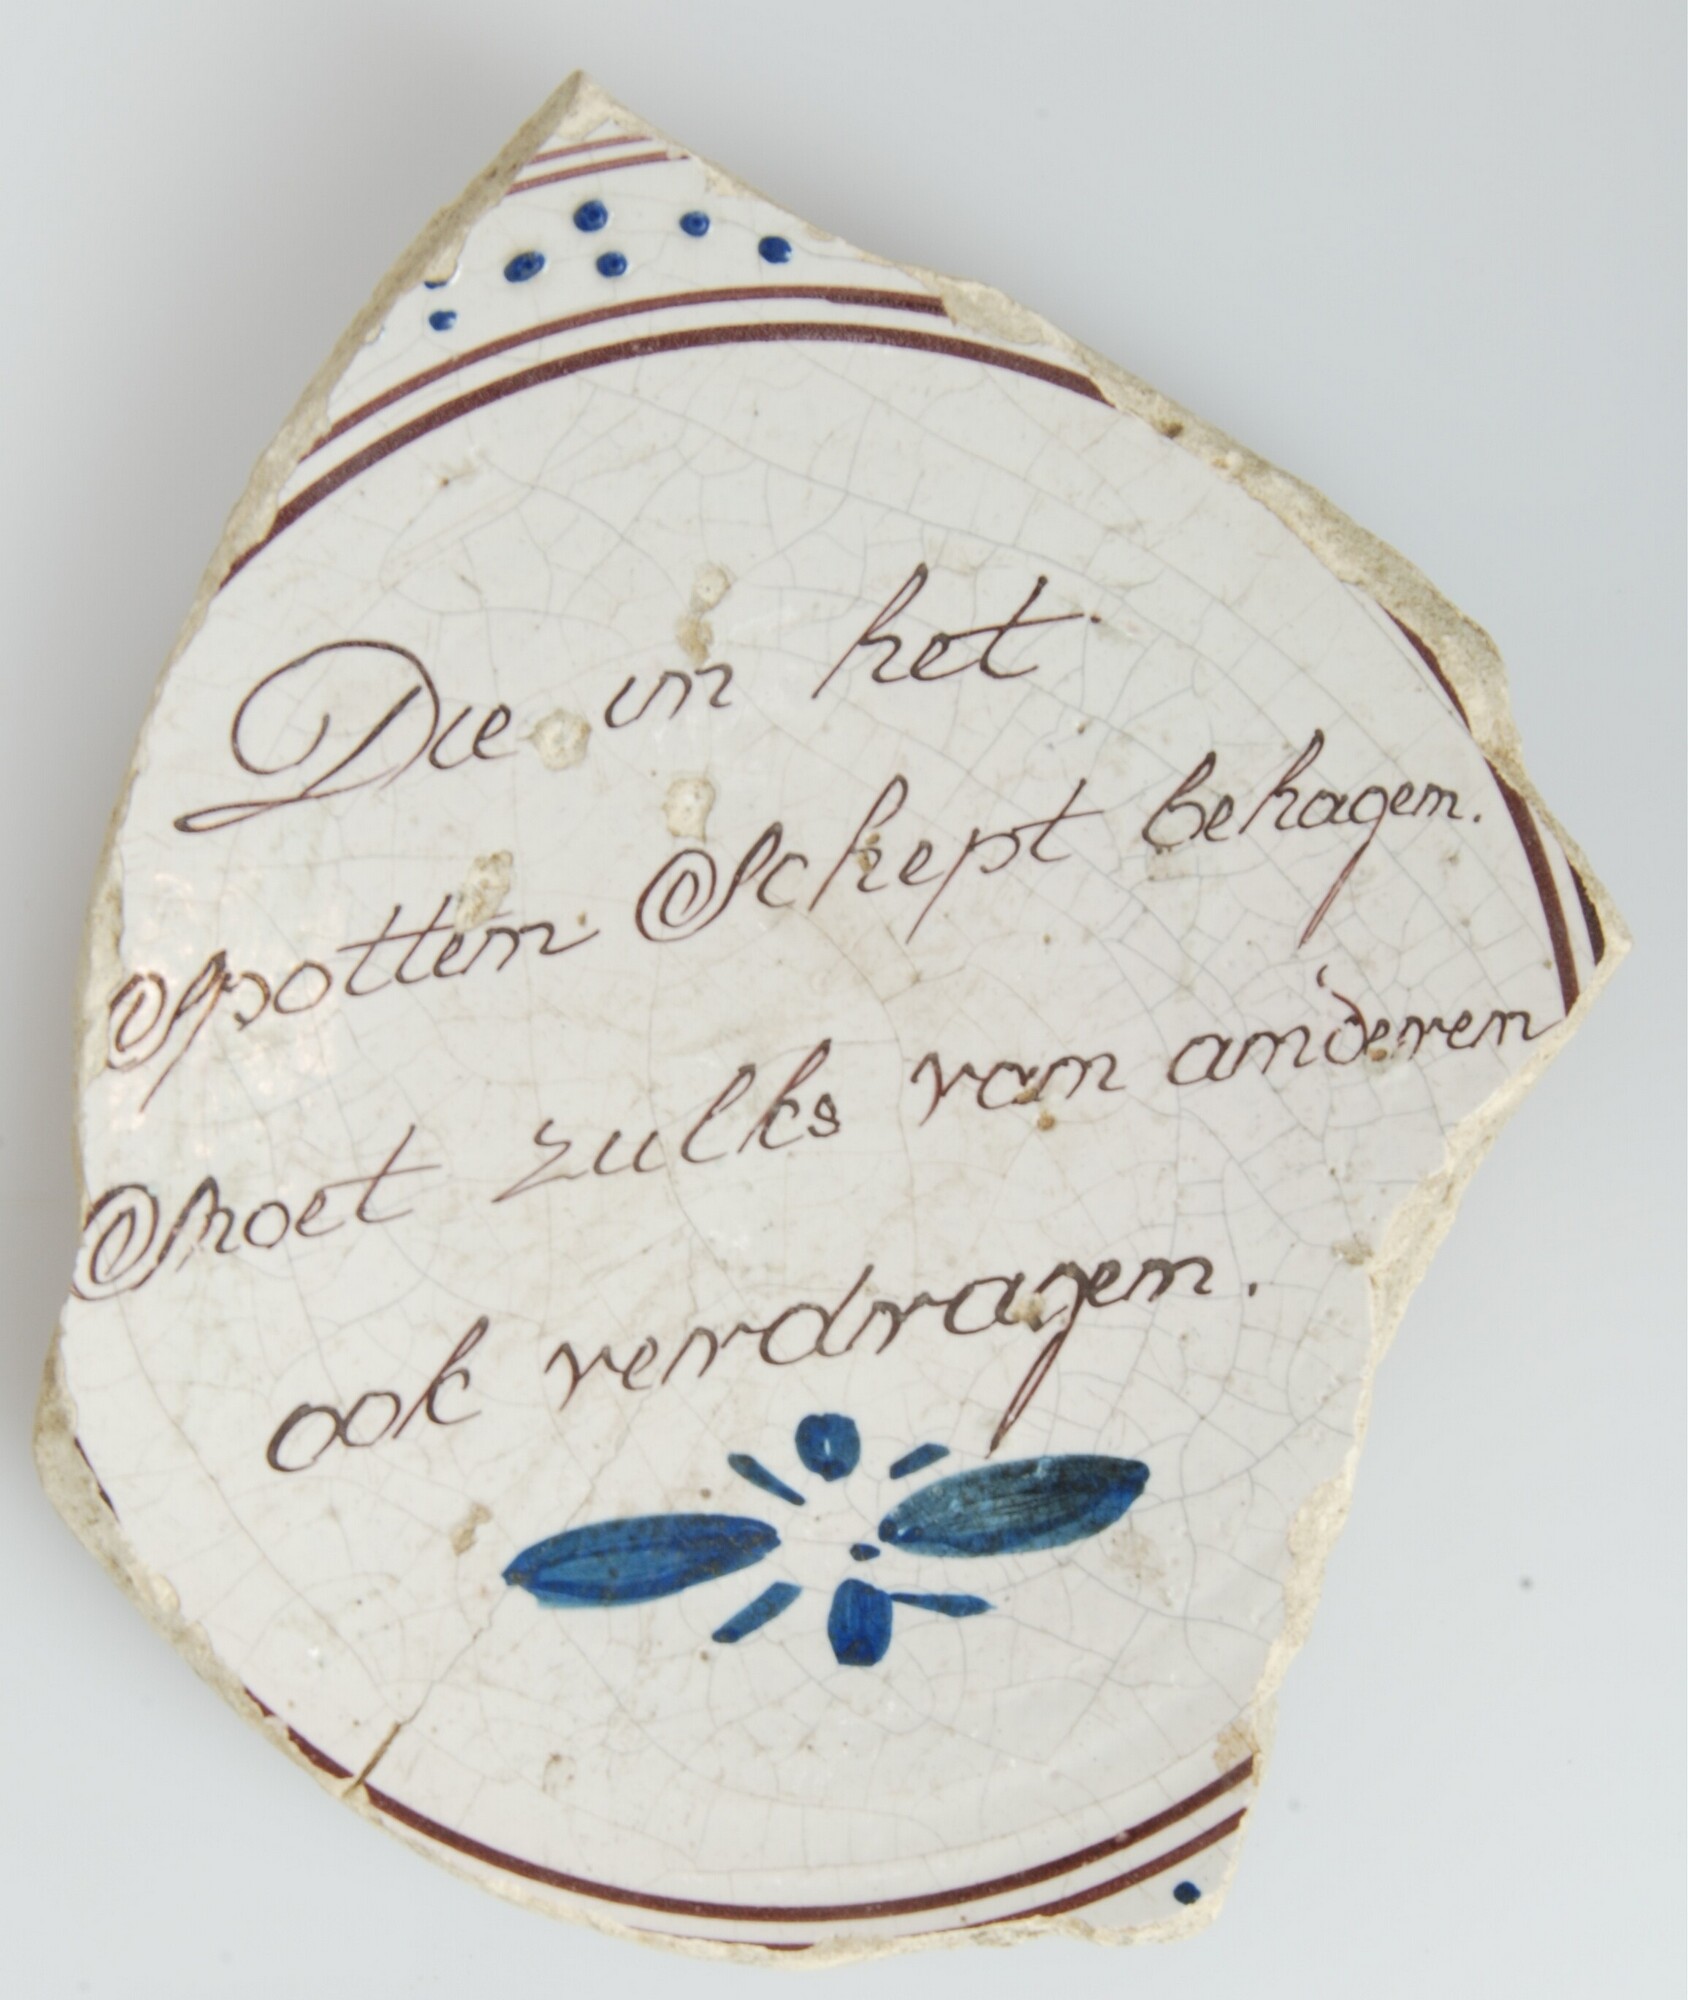 Die in het
Spotten Schept behagen.
Moet zulks van anderen
ook verdragen.